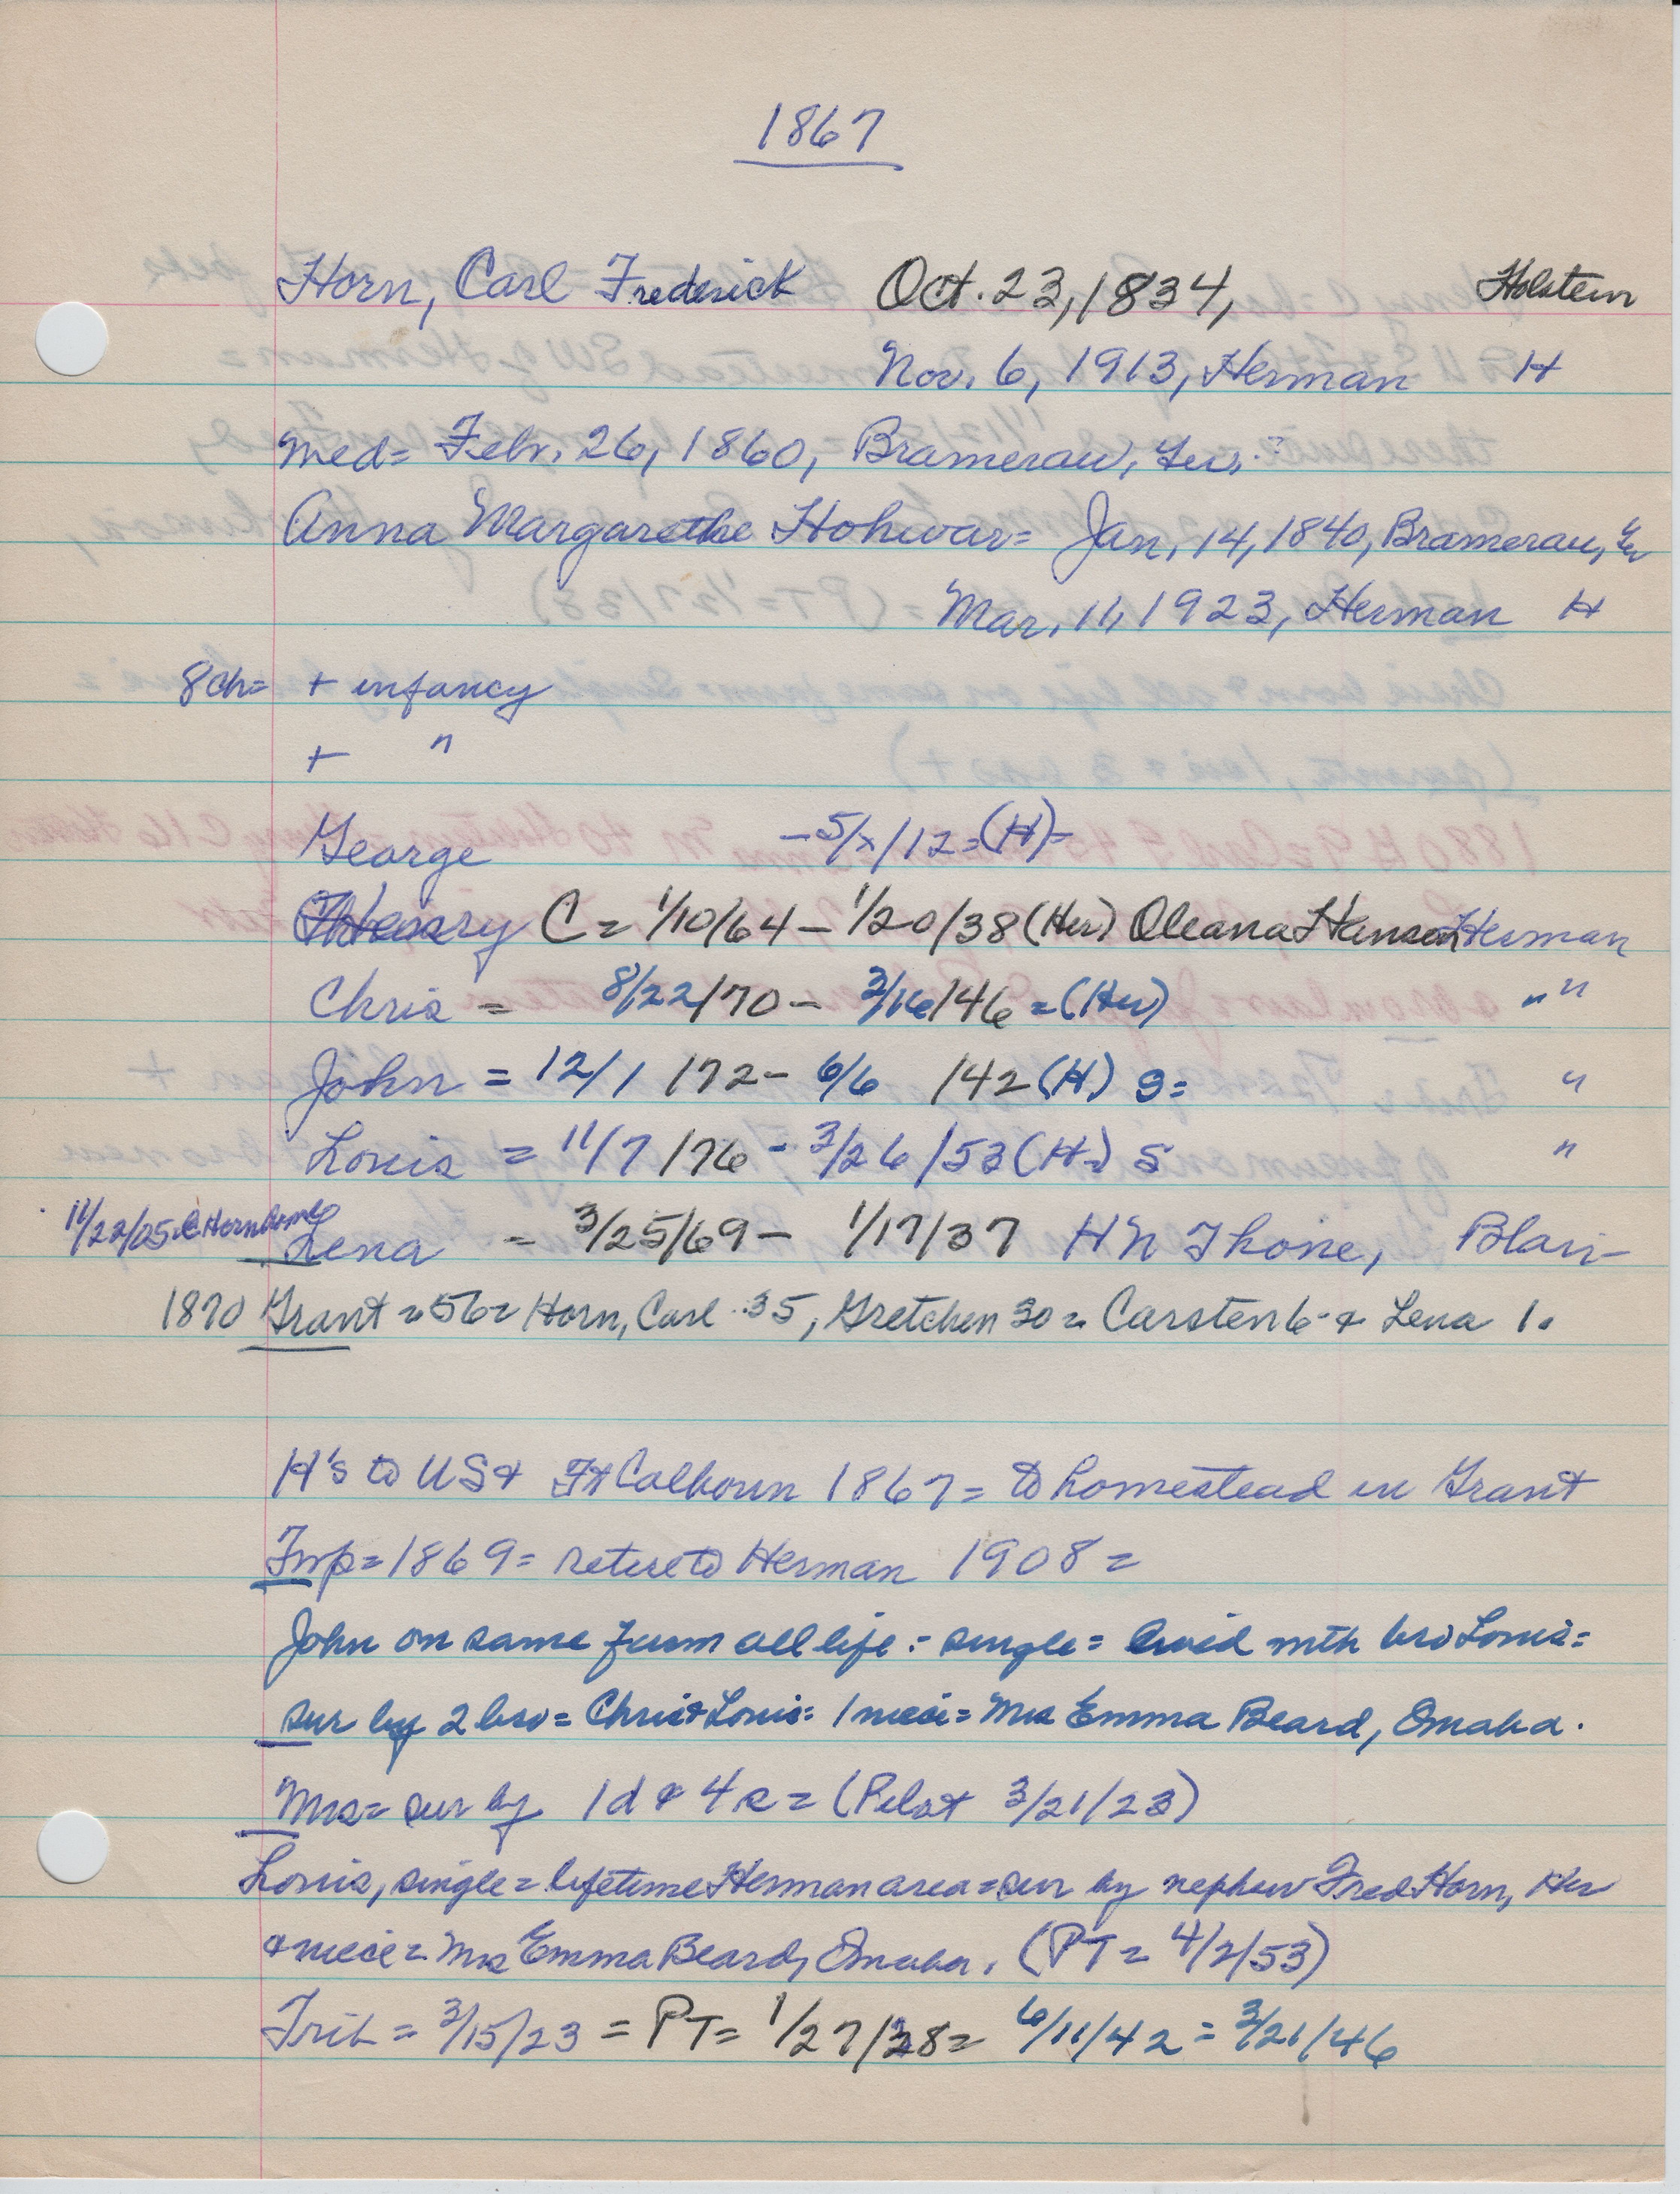 1867
Horn, Carl Frederick Oct. 23, 1834, Holstein
Nov. 6, 1913, Herman H
Med= Febr. 26, 1860, Bramerau, Ger. ?
Anna Margarethe Hohwar= Jan. 14, 1840, Bramerau, Ger
Mar. 11, 1923, Herman H
8ch= + infancy
+ "
George -5/x/12=(H)-
Henry C= 1/10/64 - 1/20/38 (Her) Oleana Hansen Herman
Chris = 8/22/70 - 3/16/46 = (Her) " "
John = 12/1/72 - 6/6/42 (H) S= "
Louis = 11/7/76 - 3/26/53 (H) S "
11/22/05 @ Horn home
Lena - 3/25/69 - 1/17/37 HN Thone, Blair
1870 Grant = 56= Horn, Carl 35, Gretchen 30 = Carsten 6 & Lena 1.
H's to US & Ft Calhoun 1867= to homestead in Grant
Twp= 1869= retire to Herman 1908=
John on same farm all life = single= lived with bro Louis=
sur by 2 bro= Chris & Louis= 1 niece= Mrs Emma Beard, Omaha.
Mrs= sur by 1d & 4s= (Pilot 3/21/23)
Louis, single= lifetime Herman area= sur by nephew Fred Horn, Her
& niece= Mrs Emma Beard, Omaha. (PT= 4/2/53)
Trib= 3/15/23 = PT= 1/27/38= 6/11/42= 3/21/46